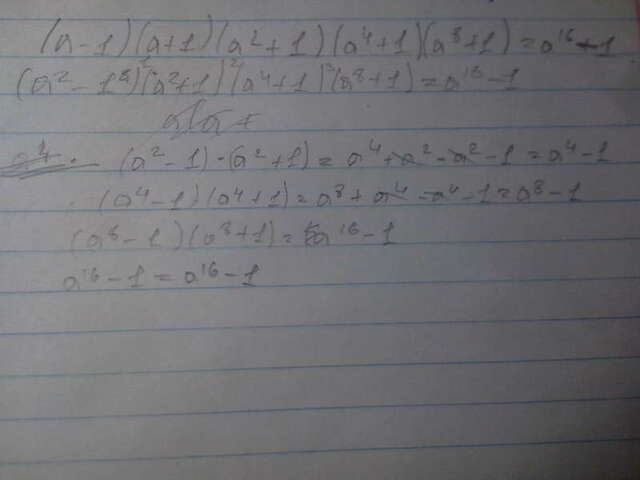 (a-1)(a+1)(a²+1)(a⁴+1)(a⁸+1)=a¹⁶-1
(a²-1²)(a²+1)(a⁴+1)(a⁸+1)=a¹⁶-1
(a²-1)·(a²+1)=a⁴+a²-a²-1=a⁴-1
(a⁴-1)(a⁴+1)=a⁸+a⁴-a⁴-1=a⁸-1
(a⁸-1)(a⁸+1)=a¹⁶-1
a¹⁶-1=a¹⁶-1